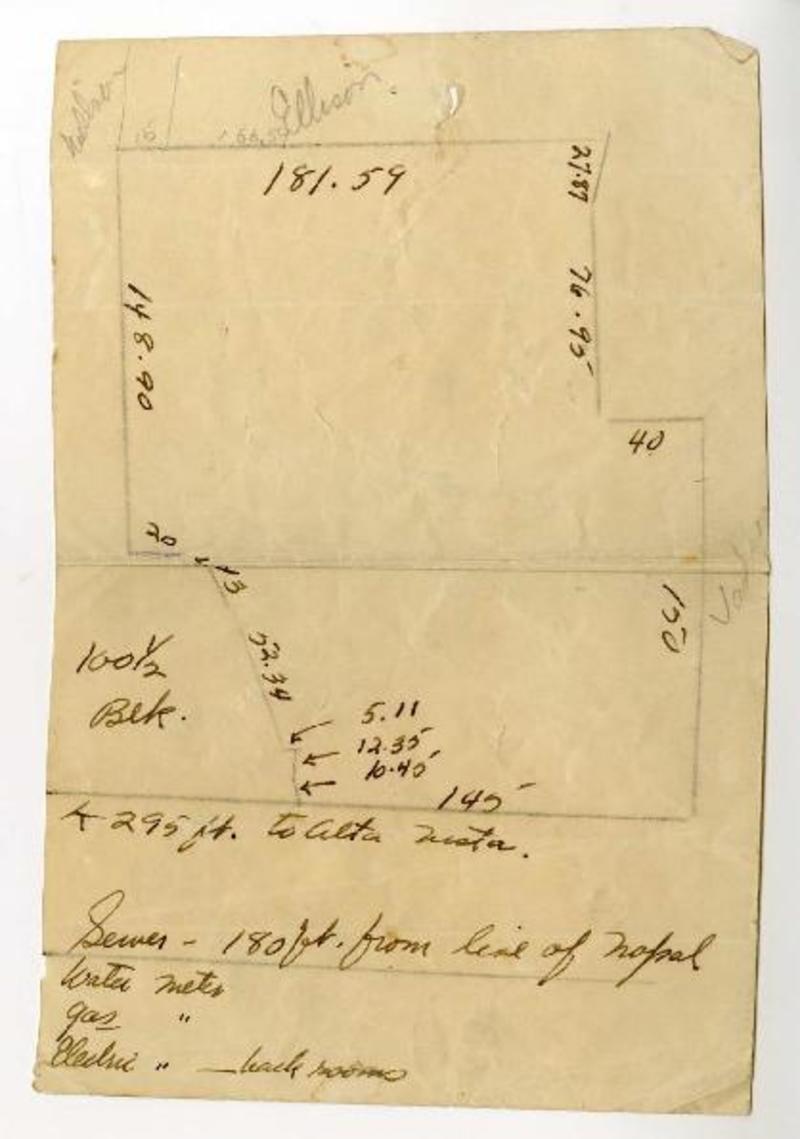 Ellison.
15
181.59
27.87
76.95
148.90
40
20
13
150
52.34
100 1/2
Blk.
5.11
12.35
10.45
145
295 ft. to Alta Vista.
Sewer - 180 ft. from line of Nopal
Water meter
gas "
Electric " — back rooms